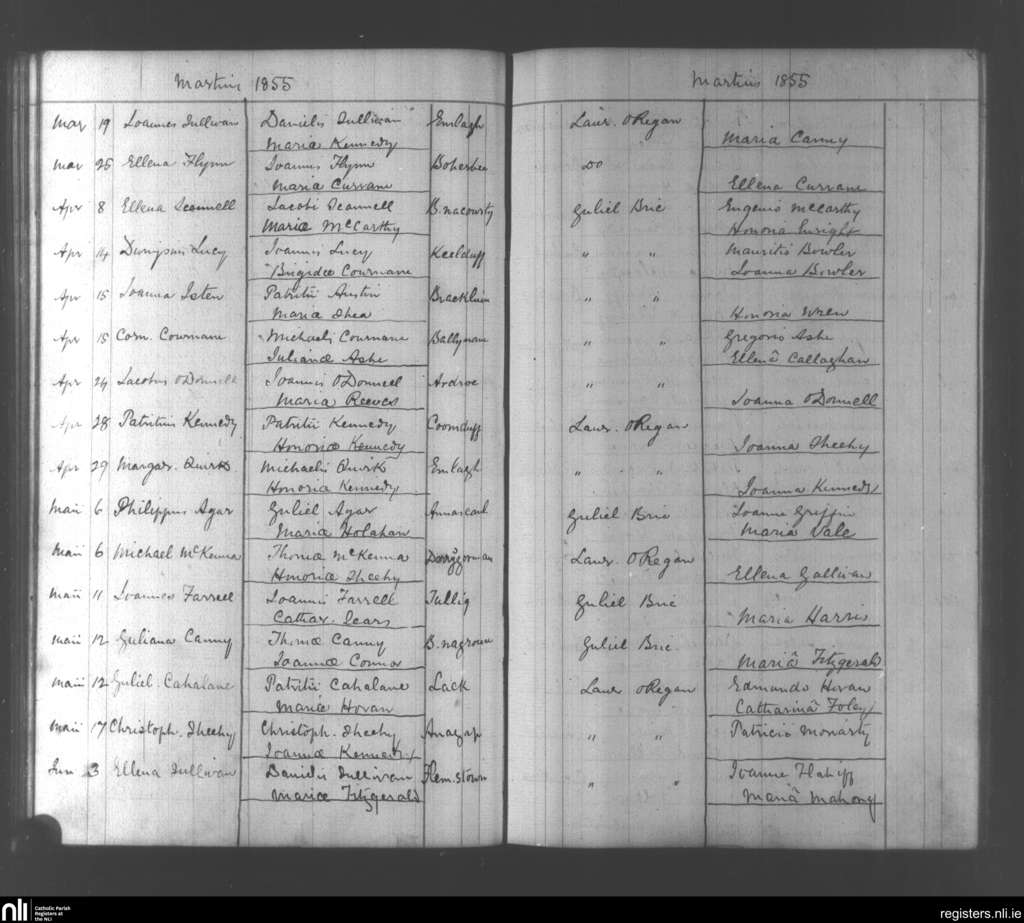 Martius 1855
Martius 1855
Mar 19 Joannes Sullivan Danielis Sullivan Emlagh Laur. O Regan
Maria Kennedy Maria Canny
Mar 25 Ellena Flynn Joannis Flynn Do
Maria Currane Ellena Currane
Apr 8 Ellena Scannell Jacobi Scannell B.nacourty Guliel Bric Eugenio McCarthy
Mariæ McCarthy Honoria Enright
Apr 14 Dionysius Lucy Joannis Lucy Keelduff " " Mauritio Bowler
Brigidæ Cournane Joanna Bowler
Apr 15 Joanna Patritii Austin Brackluin " "
Maria Shea Honoria Wren
Apr 15 Corn. Cournane Michaelis Cournane Ballynane " " Gregorio Ashe
Julianæ Ashe Ellenâ Callaghan
Apr 24 Jacobus O Donnell Joannis O Donnell Ardroe " "
Maria Reeves Joanna O Donnell
Apr 28 Patritius Kennedy Patritii Kennedy Coomduff Laur. O Regan
Honoriæ Kennedy Joanna Sheehy
Apr 29 Margar. Quirk Michaelis Quirk Emlagh " "
Honoria Kennedy Joanna Kennedy
Maii 6 Philippus Agar Guliel Agar Annascaul Guliel Bric Joanne Griffin
Maria Holahan Maria Vale
Maii 6 Michael McKenna Thomæ McKenna Derrygorman Laur. O Regan
Honoriæ Sheehy Ellena Gallivan
Maii 11 Joannes Farrell Joannis Farrell Tullig Guliel Bric
Cathar. Sears Maria Harris
Maii 12 Guliana Canny Thomæ Canny B.nagroun Guliel Bric
Joannæ Connor Mariâ Fitzgerald
Maii 12 Guliel. Cahalane Patritii Cahalane Lack Laur O Regan Edmundo Horan
Mariæ Horan Catharinâ Foley
Maii 17 Christoph. Sheehy Christoph. Sheehy Anagap " " Patricio Moriarty
Joannæ Kennedy
Jun 3 Ellena Sullivan Danielis Sullivan Flem.stown " " Joanne Flahiff
Mariæ Fitzgerald Mariâ Mahony
nli Catholic Parish
Registers at
the NLI
registers.nli.ie